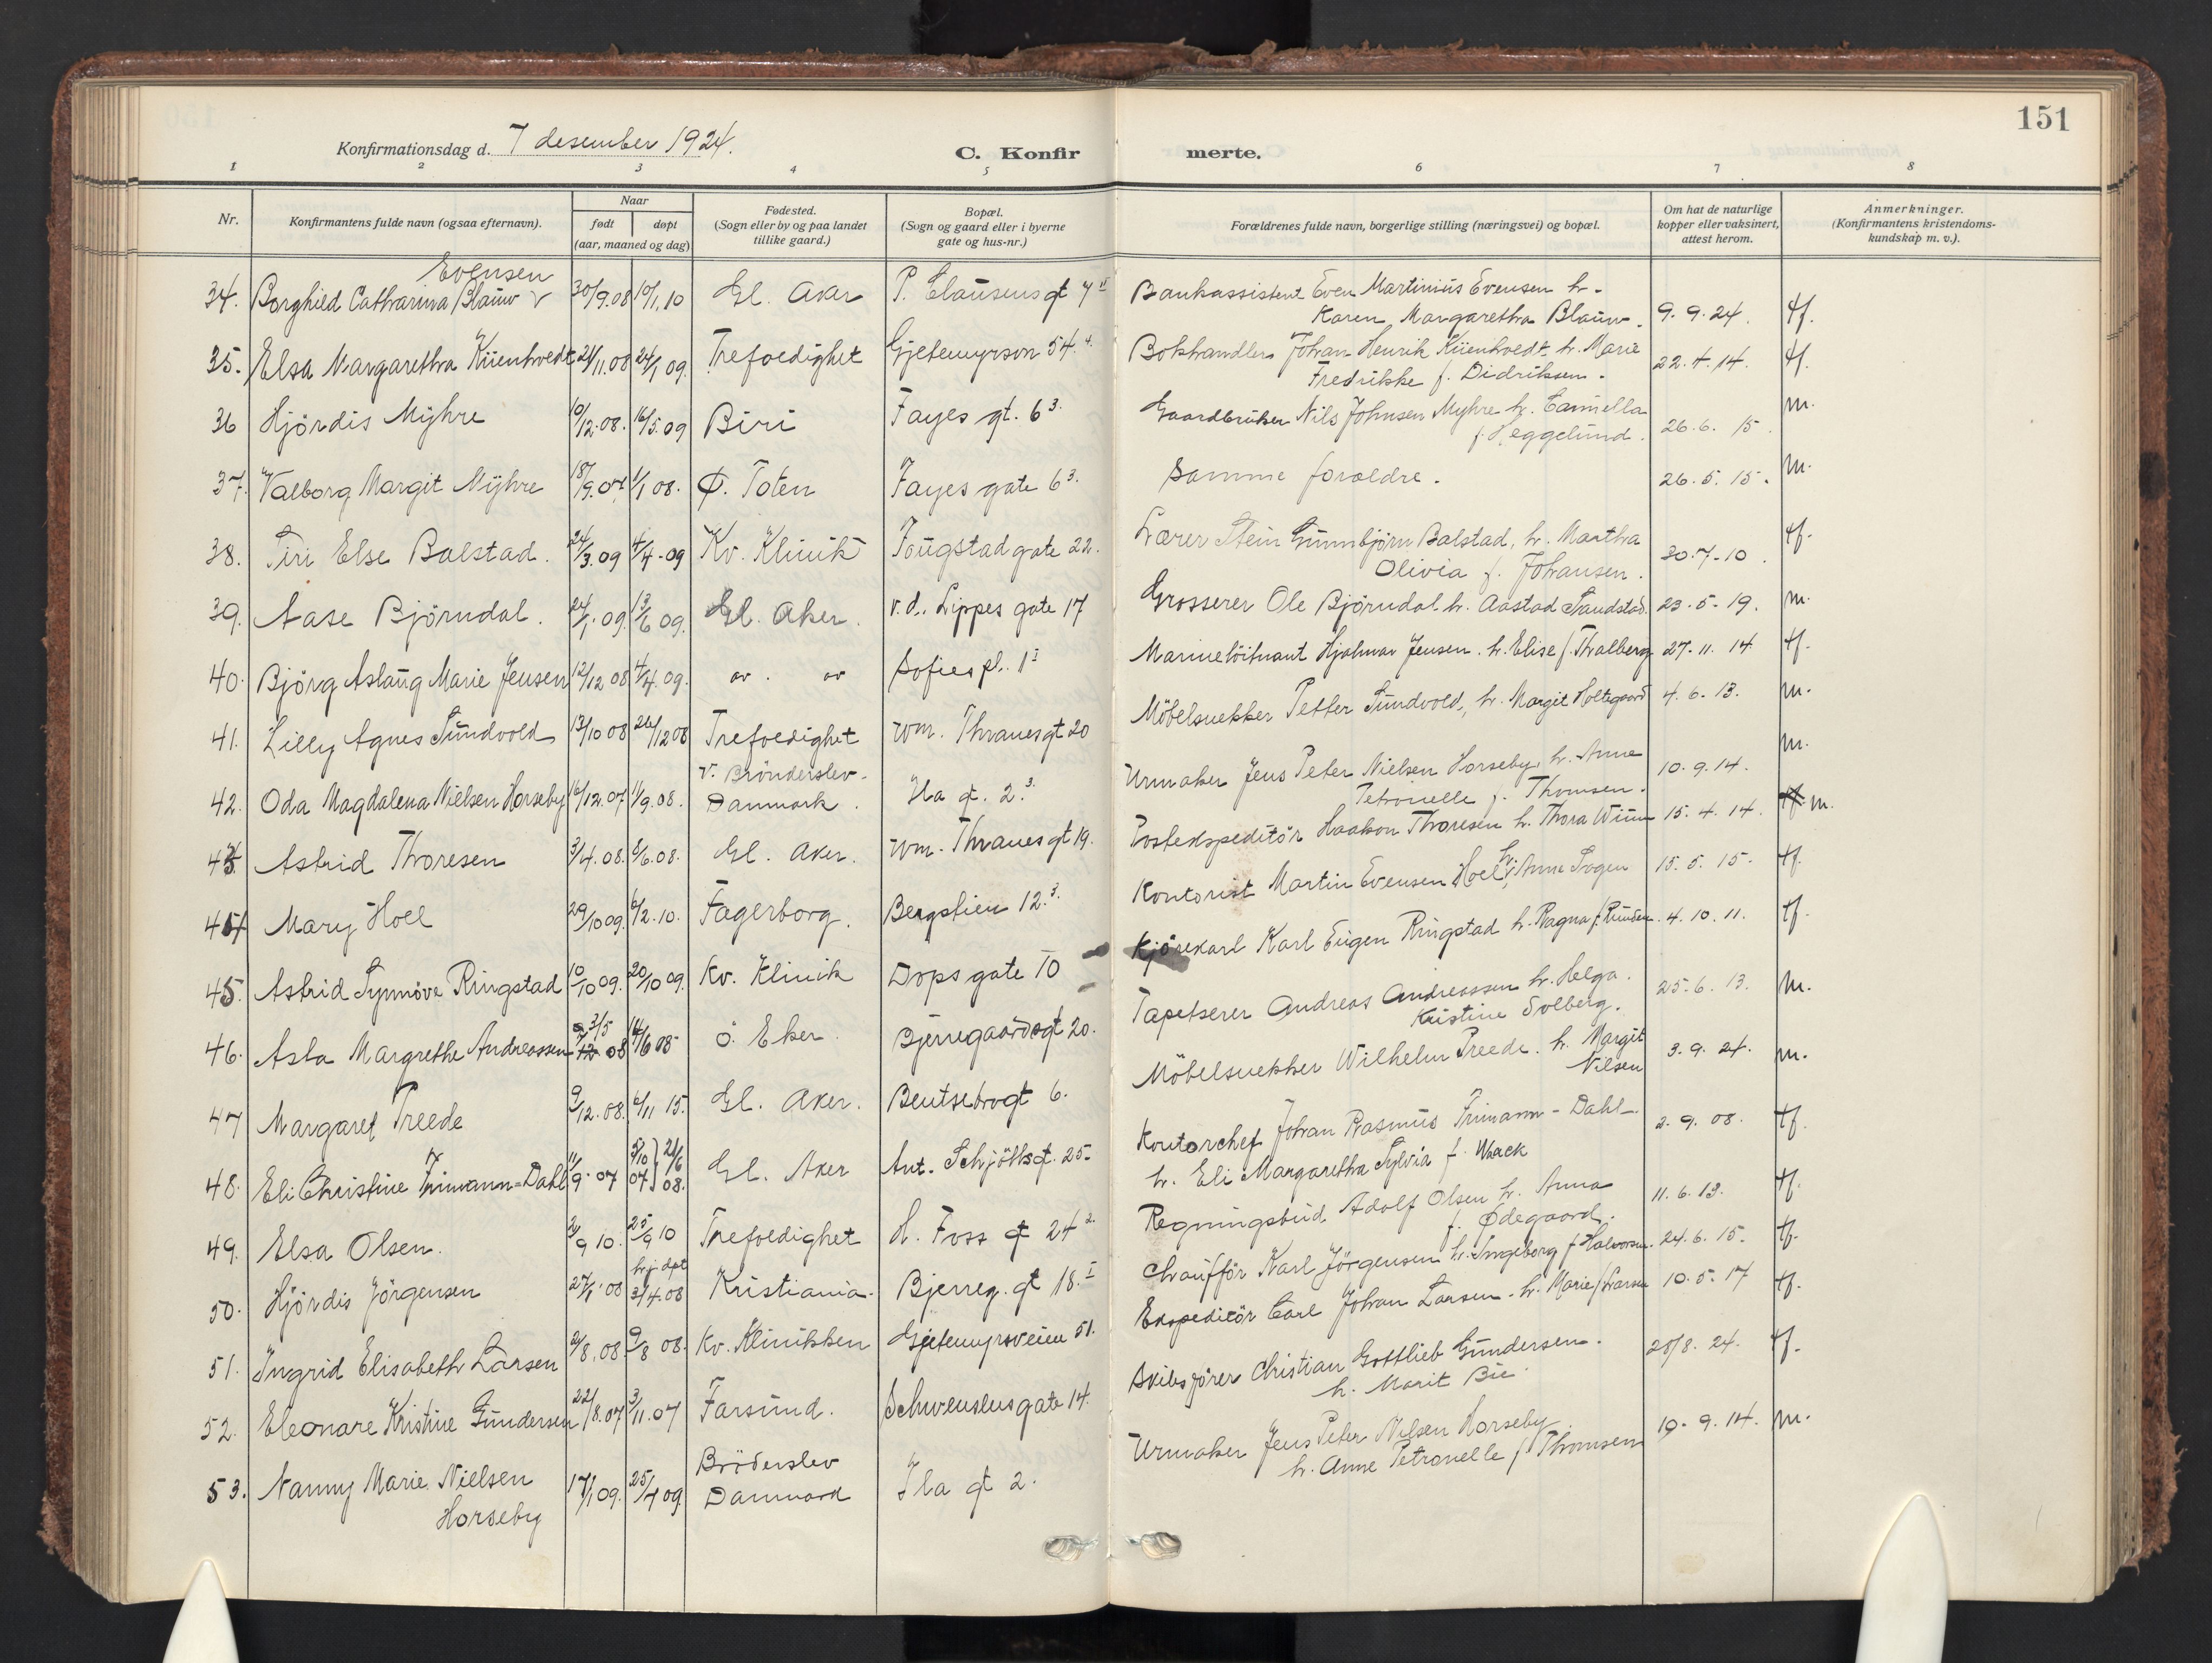 151
Konfirmationsdag d. 7 desember 1924.
C. Konfir merte.
1 2 3 4 5 6 7 8
Nr.
Konfirmantens fulde navn (ogsaa efternavn).
Naar
født døpt
(aar, maaned og dag)
Fødested.
(Sogn eller by og paa landet
tillike gaard.)
Bopæl.
(Sogn og gaard eller i byerne
gate og hus-nr.)
Forældrenes fulde navn, borgerlige stilling (næringsvei) og bopæl.
Om hat de naturlige
kopper eller vaksinert,
attest herom.
Anmerkninger.
(Konfirmantens kristendoms-
kundskap m. v.).
Evensen
34. Borghild Catharina Blauw 30/9.08 10/1,10 Gl. Aker P. Clausensgt 7 II Bankassistent Even Martinius Evensen h.
Karen Margaretha Blauw. 9.9.24. tf.
35. Elsa Margaretha Küenholdt 21/11.08 24/1 09. Trefoldighet Gjetemyrsvn 54.4. Bokhandler Johan Henrik Küenholdt h. Marie
Fredrikke f. Didriksen. 22.4.14. tf.
36 Hjördis Myhre 10/12.08. 16/5.09 Biri Fayes gt. 6 3. Gaardbruker Nils Johnsen Myhre h. Camella
f. Heggelund. 26.6. 15. m.
37. Valborg Margit Myhre 18/9.07 1/1 08. Ø. Toten Fayes gate 6 3. Samme foraeldre. 26.5.15. m.
38. Siri Else Balstad. 24/3.09 4/4-09 Kv. Klinik Fougstadgate 22. Lærer Stein Gunnbjörn Balstad, h. Martha
Olivia f. Johansen. 30.7-10. tf.
39. Aase Björndal. 24/1.09. 13/6 09. Gl. Aker. v.d. Lippes gate 17 Grosserer Ole Björndal h. Aastad Sandstad. 23.5-19. m.
40. Björg Aslaug Marie Jensen 12/12 08 4/4 09. Sofies pl. 1 I Marinelöitnant Hjalmar Jensen. h. Elise f. Thalberg 27.11.14 tf.
41. Lilly Agnes Sundvold 13/10 08 26/12 08 Trefoldighet Wm. Thranesgt 20 Möbelsnekker Petter Sundvold, h. Margit Holtegaard 4.6.13. m.
42. Oda Magdalena Nielsen Horseby 16/12.07 11/9.08. V. Brönderslev-
Danmark. Ila gt. 2.3. Urmaker Jens Peter Nielsen Horseby, h. Anne
Petronelle f. Thomsen. 10.9.14. m.
43. Astrid Thoresen 3/4.08. 8/6.08. Gl. Aker. Wm. Thranes gt 19. Postekspeditör Haakon Thoresen h. Thora Winn 15.4.14. m.
44 Mary Hoel 29/10 09. 6/2.10. Fagerborg. Bergstien 12.3. Kontorist Martin Evensen Hoel h. Anna Sogen 15.5.15. tf.
45. Astrid Synnöve Ringstad 10/10 09. 20/10 09. Kv. Klinik Dops gate 10 Kjörekarl Karl Eugen Ringstad h. Ragna f. Runden. 4.10.11. tf.
46. Asta Margrethe Andreassen 3/5 08 14/6 08 ö. Eker. Bjerregaardsgt 20. Tapetserer Andreas Andreassen h. Helga
Kristine Solberg. 25.6.13. m.
47 Margaret Preede 9/12.08. 6/11 15. Gl. Aker. Bentsebrogt 6. Möbelsnekker Wilhelm Preede. h. Margit
Nilsen 3.9.24. m.
48. Eli Christine Frimann-Dahl 11/9.07 5/10 07 } 21/6 08. Gl. Aker Ant. Schjöttsgt. 25. Kontorchef Johan Rasmus Frimann-Dahl
h. Eli Margaretha Sylvia f. Waack 2.9.08. tf.
49. Elsa Olsen. 2/9 10. 25/9 10 Trefoldighet H. Foss gt 24 2. Regningsbud Adolf Olsen h. Anna
f. Ødegaard. 11.6.13. tf.
50. Hjördis Jörgensen 27/1.08 hj. dpt 3/4.08 Kristiania. Bjerreg. gt 18. I Chauffför Karl Jörgensen h. Ingeborg f. Halvorsen. 24.6.15. tf.
51. Ingrid Elisabeth Larsen 2/8,08. 9/8 08. Kv. Klinikken Gjetemyrsveien 51. Ekspeditör Carl Johan Larsen. h. Marie f. Larsen 10.5.17 tf.
52. Eleonare Kristine Gundersen 22/8.07 3/11.07 Farsund. Schwenslusgate 14. Skibsförer Christian Gottlieb Gundersen.
h. Marit Bie 28/8. 24. tf.
53. Nanny Marie Nielsen
Horseby 17/1 09. 25/4 09. Bröderslev
Danmark Ila gt 2. Urmaker Jens Peter Nilsen Horseby.
h. Anne Petronelle f. Thomsen 19.9.14. m.